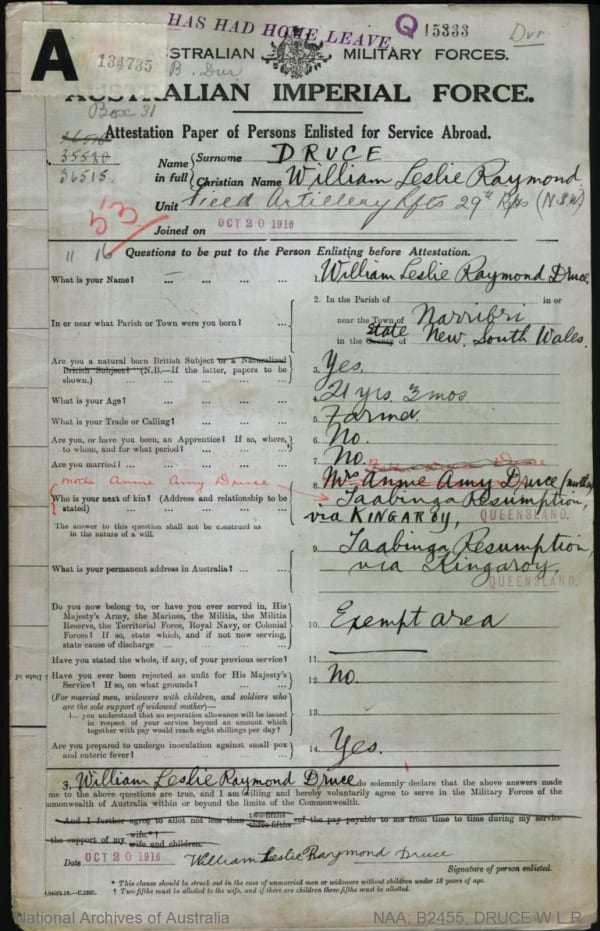 HAS HAD HOME LEAVE
Q 15333
A
134735
AUSTRALIAN MILITARY FORCES.
AUSTRALIAN IMPERIAL FORCE.
Box 31
Attestation Paper of Persons Enlisted for Service Abroad.
35520
36515.
Name in full
Surname DRUCE
Christian Name William Leslie Raymond
Unit Field Artillery Rfts 29th Rfts (N.S.W)
Joined on OCT 20 1916
11 16
Questions to be put to the Person Enlisting before Attestation.
What is your Name? ... ... ... ... 1. William Leslie Raymond Druce.
In or near what Parish or Town were you born? ... 2. In the Parish of in or
near the Town of Narribri
in the County of State New South Wales.
Are you a natural born British Subject or a Naturalized
British Subject? (N.B.—If the latter, papers to be
shown.) ... ... ... ... 3. Yes.
What is your Age? ... ... ... ... 4. 21 yrs 3 mos.
What is your Trade or Calling? ... ... ... 5. Farmer.
Are you, or have you been, an Apprentice? If so, where,
to whom, and for what period? ... ... ... 6. No.
Are you married? ... ... ... ... 7. No.
mother Annie Amy Druce
Who is your next of kin? (Address and relationship to be
stated) ... ... ... ... 8. Mrs Annie Amy Druce (mother)
Taabinga Resumption,
via KINGAROY, QUEENSLAND.
The answer to this question shall not be construed as
in the nature of a will.
What is your permanent address in Australia? ... ... 9. Taabinga Resumption,
via Kingaroy.
QUEENSLAND.
Do you now belong to, or have you ever served in, His
Majesty's Army, the Marines, the Militia, the Militia
Reserve, the Territorial Force, Royal Navy, or Colonial
Forces? If so, state which, and if not now serving,
state cause of discharge ... ... ... 10. Exempt area
Have you stated the whole, if any, of your previous service? 11.
Have you ever been rejected as unfit for His Majesty's
Service? If so, on what grounds? ... ... 12. No.
(For married men, widowers with children, and soldiers who
are the sole support of widowed mother)—
you understand that no separation allowance will be issued
in respect of your service beyond an amount which
together with pay would reach eight shillings per day? 13.
Are you prepared to undergo inoculation against small pox
and enteric fever? ... ... ... 14. Yes.
William Leslie Raymond Druce do solemnly declare that the above answers made
me to the above questions are true, and I am willing and hereby voluntarily agree to serve in the Military Forces of the
monwealth of Australia within or beyond the limits of the Commonwealth.
And I further agree to allot not less than two-fifths three-fifths of the pay payable to me from time to time during my service
the support of my wife.*† wife and children.
Date OCT 20 1916 William Leslie Raymond Druce
Signature of person enlisted.
* This clause should be struck out in the case of unmarried men or widowers without children under 18 years of age.
† Two-fifths must be allotted to the wife, and if there are children three-fifths must be allotted.
National Archives of Australia
NAA: B2455, DRUCE W L R